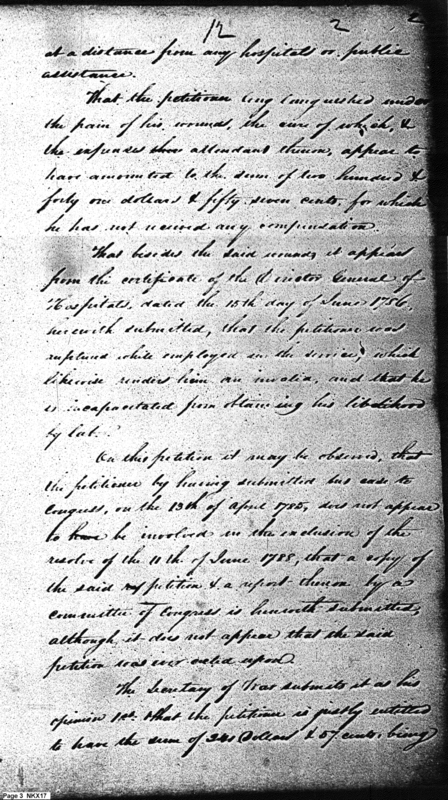 12 2 2
at a distance from any hospitals or public
assistance.
That the petitioner long languished under
the pain of his wounds, the cure of which, &
the expenses attendant thereon, appear to
have amounted to the sum of two hundred &
forty one dollars & fifty seven cents, for which
he has not received any compensation.
That besides the said wounds, it appears
from the certificate of the Director General of
Hospitals, dated the 15th day of June 1786,
herewith submitted, that the petitioner was
ruptured while employed in the service, which
likewise renders him an invalid, and that he
is incapacitated from obtaining his livelihood
by
On this petition it may be observed, that
the petitioner by having submitted his case to
Congress, on the 13th of April 1785, does not appear
to have be involved in the exclusion of the
resolve of the 11th of June 1788, that a copy of
the said petition & a report thereon by a
committee of Congress is herewith submitted,
although, it does not appear that the said
petition was ever acted upon.
The Secretary of War submits it as his
opinion 1st. That the petitioner is justly entitled
to have the sum of 241 Dollars & 57 cents, being
Page 3 NKX17